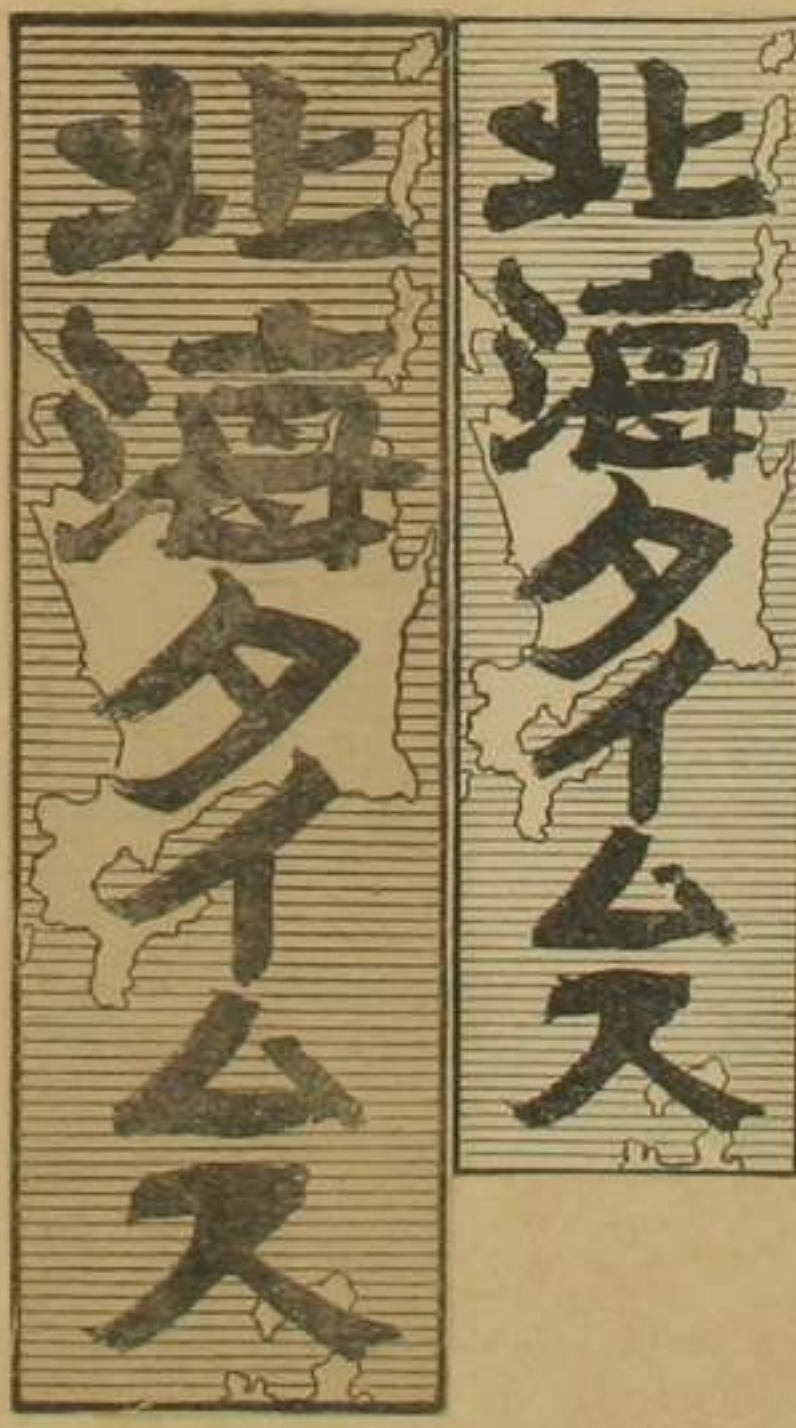 北海タイムス
北海タイムス